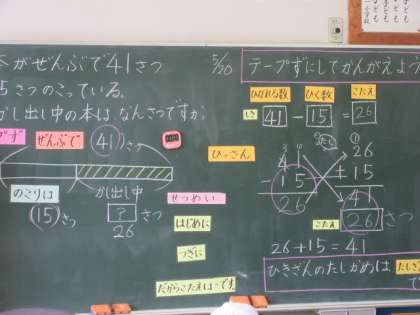 本がぜんぶで41さつ
5さつのこっている。
かし出し中の本は、なんさつですか。
ず
ぜんぶで
41さつ
のこりは
15さつ
かし出し中
?
さつ
26
5/20
テープずにしてかんがえよう
ひかれる数
ひく数
こたえ
しき
41
-
15
=
26
ひっさん
せつめい
はじめに
つぎに
だからこたえは〜です。
41
-15
26
たし
26
+15
41
こたえ
26さつ
26+15=41
ひきざんのたしかめは、
たしざ